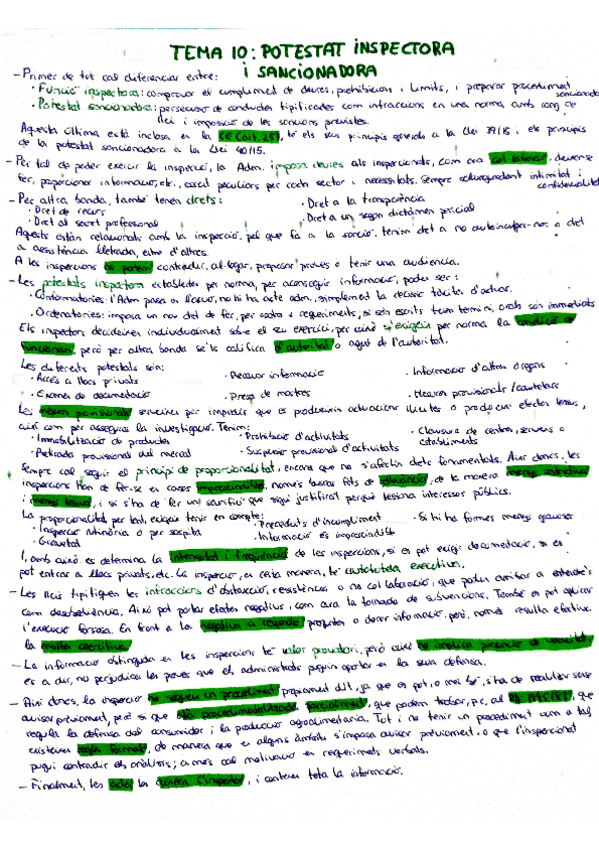 TEMA 10: POTESTAT INSPECTORA
i SANCIONADORA
- Primer de tot cal diferenciar entre:
· Funció inspectora: comprovar el compliment de deures, prohibicions i límits, i preparar procediment sancionador
· Potestat sancionadora: persecució de conductes tipificades com infraccions en una norma amb rang de
llei i imposició de les sancions previstes.
Aquesta última està inclosa en la CE (art. 25), té els seus principis a la Llei 39/15 i els principis
de la potestat sancionadora a la Llei 40/15.
- Per tal de poder exercir la inspecció, la Adm. imposa deures als inspeccionats, com ara col·laborar, deixar-se
fer, proporcionar informació, etc., essent peculiars per cada sector i necessitats. Sempre salvaguardant intimitat i
confidencialitat
- Per altra banda, també tenen drets:
· Dret a la transparència
· Dret de recurs
· Dret a un segon dictamen pericial
· Dret al secret professional
Aquests estan relacionats amb la inspecció, pel que fa a la sanció, tenim dret a no autoinculpar-nos o dret
a assistència lletrada, entre d'altres.
A les inspeccions no podem contradir, al·legar, proposar proves o tenir una audiència.
- Les potestats inspectores establertes per norma, per aconseguir informació, poden ser:
· Conformatòries: l'Adm passa a l'acció, no hi ha acte adm., simplement la decisió tàcita d'actuar.
· Ordenatòries: imposa un nou del de fer, per cada requeriment; si són escrits tenen termini, orals són immediats
Els inspectors decideixen individualment sobre el seu exercici, per això s'exigeix per norma la condició de
funcionari, però per altra banda se'ls califica d'autoritat o agent de l'autoritat.
Les diferents potestats són:
· Accés a llocs privats
· Recavar informació
· Informació d'altres òrgans
· Examen de documentació
· Presa de mostres
· Mesures provisionals/cautelars
Les mesures provisionals serveixen per impedir que es produeixin actuacions il·lícites o produeixin efectes lesius,
així com per assegurar la investigació. Tenim:
· Immobilització de productes
· Prohibició d'activitats
· Clausura de centres, serveis o
establiments
· Retirada provisional del mercat
· Suspensió provisional d'activitats
Sempre cal seguir el principi de proporcionalitat, encara que no s'afectin drets fonamentals. Així doncs, les
inspeccions han de fer-se en casos imprescindibles, només buscar fets de rellevància, de la manera menys restrictiva
i menys lesiva, i si s'ha de fer un sacrifici que sigui justificat perquè lesiona interessos públics.
La proporcionalitat, per tant, exigeix tenir en compte:
· Precedents d'incompliment
· Si hi ha formes menys gravoses
· Inspecció rutinària o per sospita
· Informació és imprescindible
· Gravetat
I, amb això, es determina la intensitat i freqüència de les inspeccions, si es pot exigir documentació, si es
pot entrar a llocs privats, etc. La inspecció, en certa manera, té autotutela executiva.
- Les lleis tipifiquen les infraccions d'obstrucció, resistència o no col·laboració, que poden arribar a entendre's
com desobediència. Això pot portar efectes negatius, com ara la tornada de subvencions. També es pot aplicar
l'execució forçosa. En front a la negativa a respondre preguntes o donar informació, però, només resulta efectiva
la multa coercitiva.
- La informació obtinguda en les inspeccions té valor probatori, però això no implica presumpció de veracitat,
és a dir, no perjudica les proves que els administrats puguin aportar en la seva defensa.
- Així doncs, la inspecció no segueix un procediment pròpiament dit, ja que es pot, o més bé, s'ha de realitzar sense
avisar prèviament, però sí que està procedimentalitzada parcialment, que podem trobar, p.e, al RD 1945/83, que
regula la defensa del consumidor i la producció agroalimentària. Tot i no tenir un procediment com a tal,
existeixen regles formals, de manera que en alguns àmbits s'imposa avisar prèviament, o que l'inspeccionat
pugui contradir els anàlisis; a més cal motivació en requeriments verbals.
- Finalment, les actes la l'inspector, i contenen tota la informació.